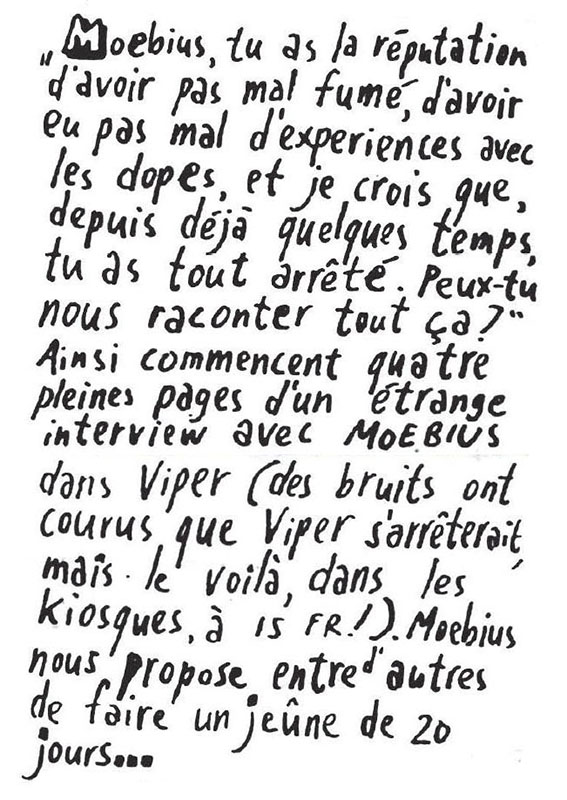 „Moebius, tu as la réputation
d'avoir pas mal fumé, d'avoir
eu pas mal d'experiences avec
les dopes, et je crois que,
depuis déjà quelques temps,
tu as tout arrêté. Peux-tu
nous raconter tout ça?"
Ainsi commencent quatre
pleines pages d'un étrange
interview avec MOEBIUS
dans Viper (des bruits ont
courus que Viper s'arrêterait,
mais le voilà, dans les
kiosques, à 15 FR!). Moebius
nous propose entre d'autres
de faire un jeûne de 20
jours...